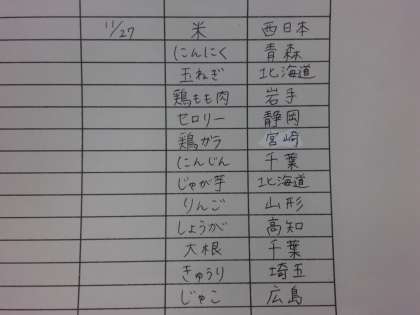 11/27 米 西日本
にんにく 青森
玉ねぎ 北海道
鶏もも肉 岩手
セロリー 静岡
鶏ガラ 宮崎
にんじん 千葉
じゃが芋 北海道
りんご 山形
しょうが 高知
大根 千葉
きゅうり 埼玉
じゃこ 広島